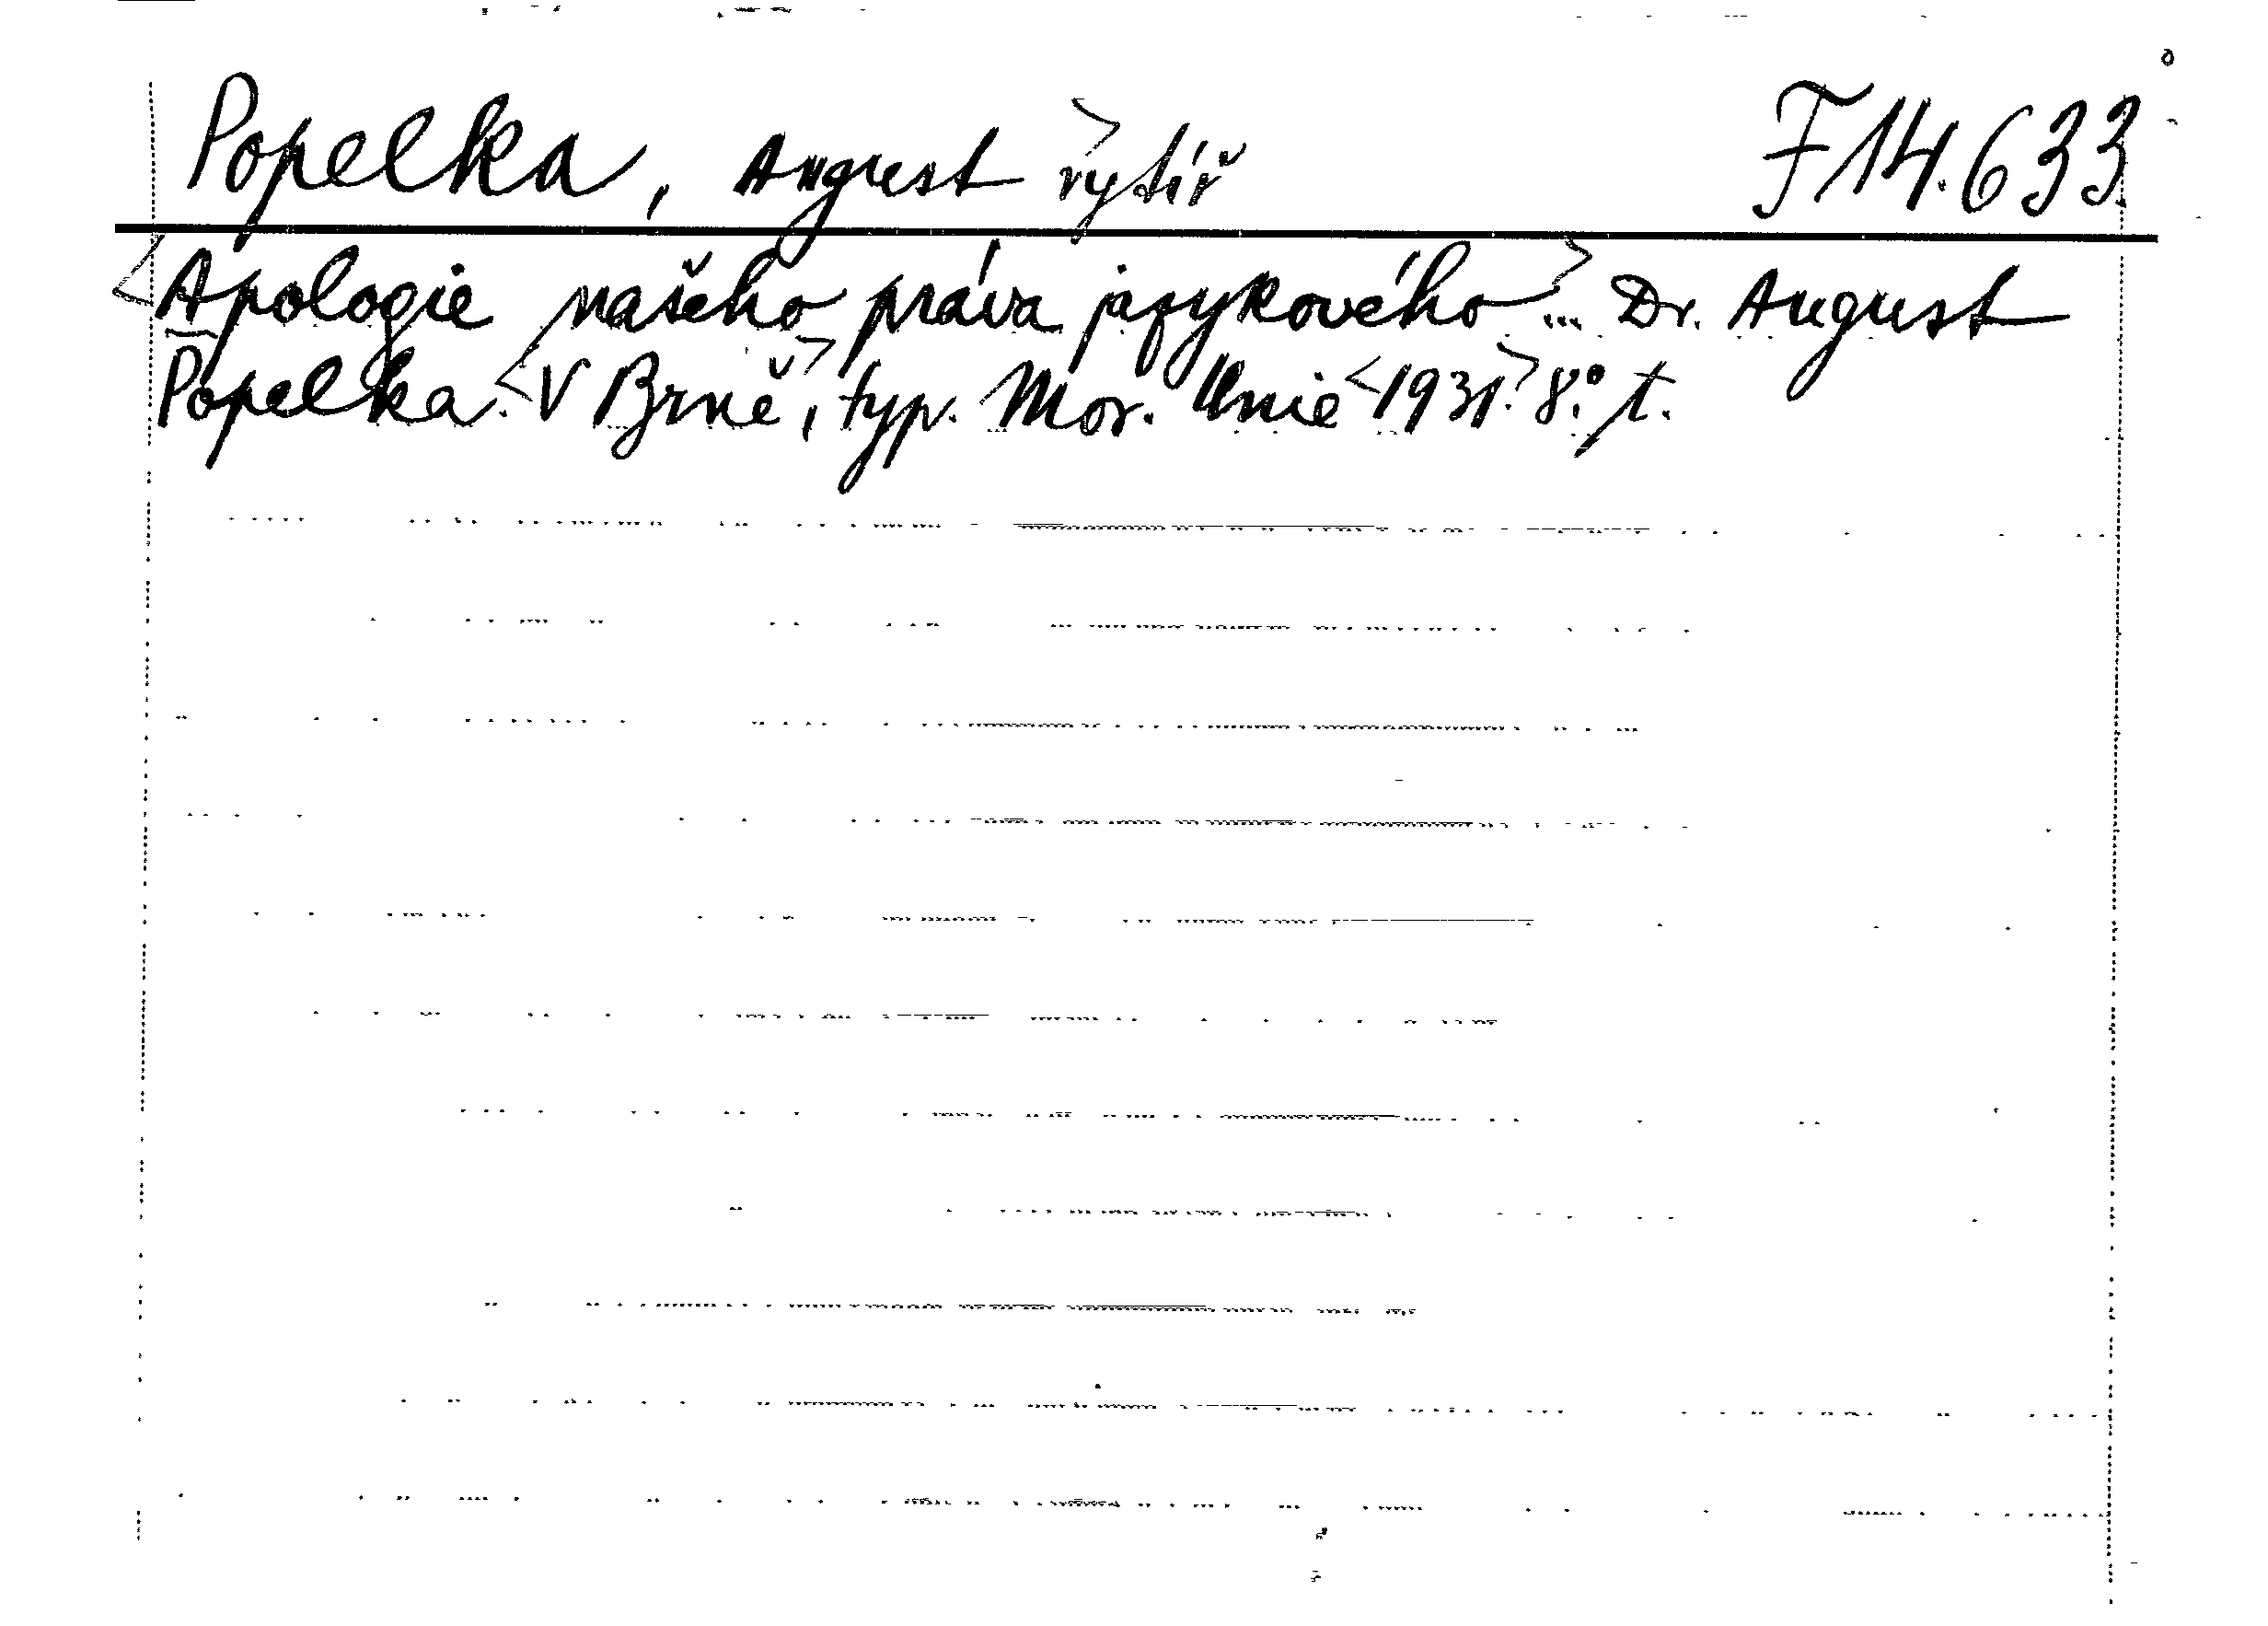 Popelka, August rytíř F 14.633
<Apologie našeho práva jazykového> ... Dr. August
Popelka. <V Brně>, typ. Mor. Unie <1931.> 8.° t.